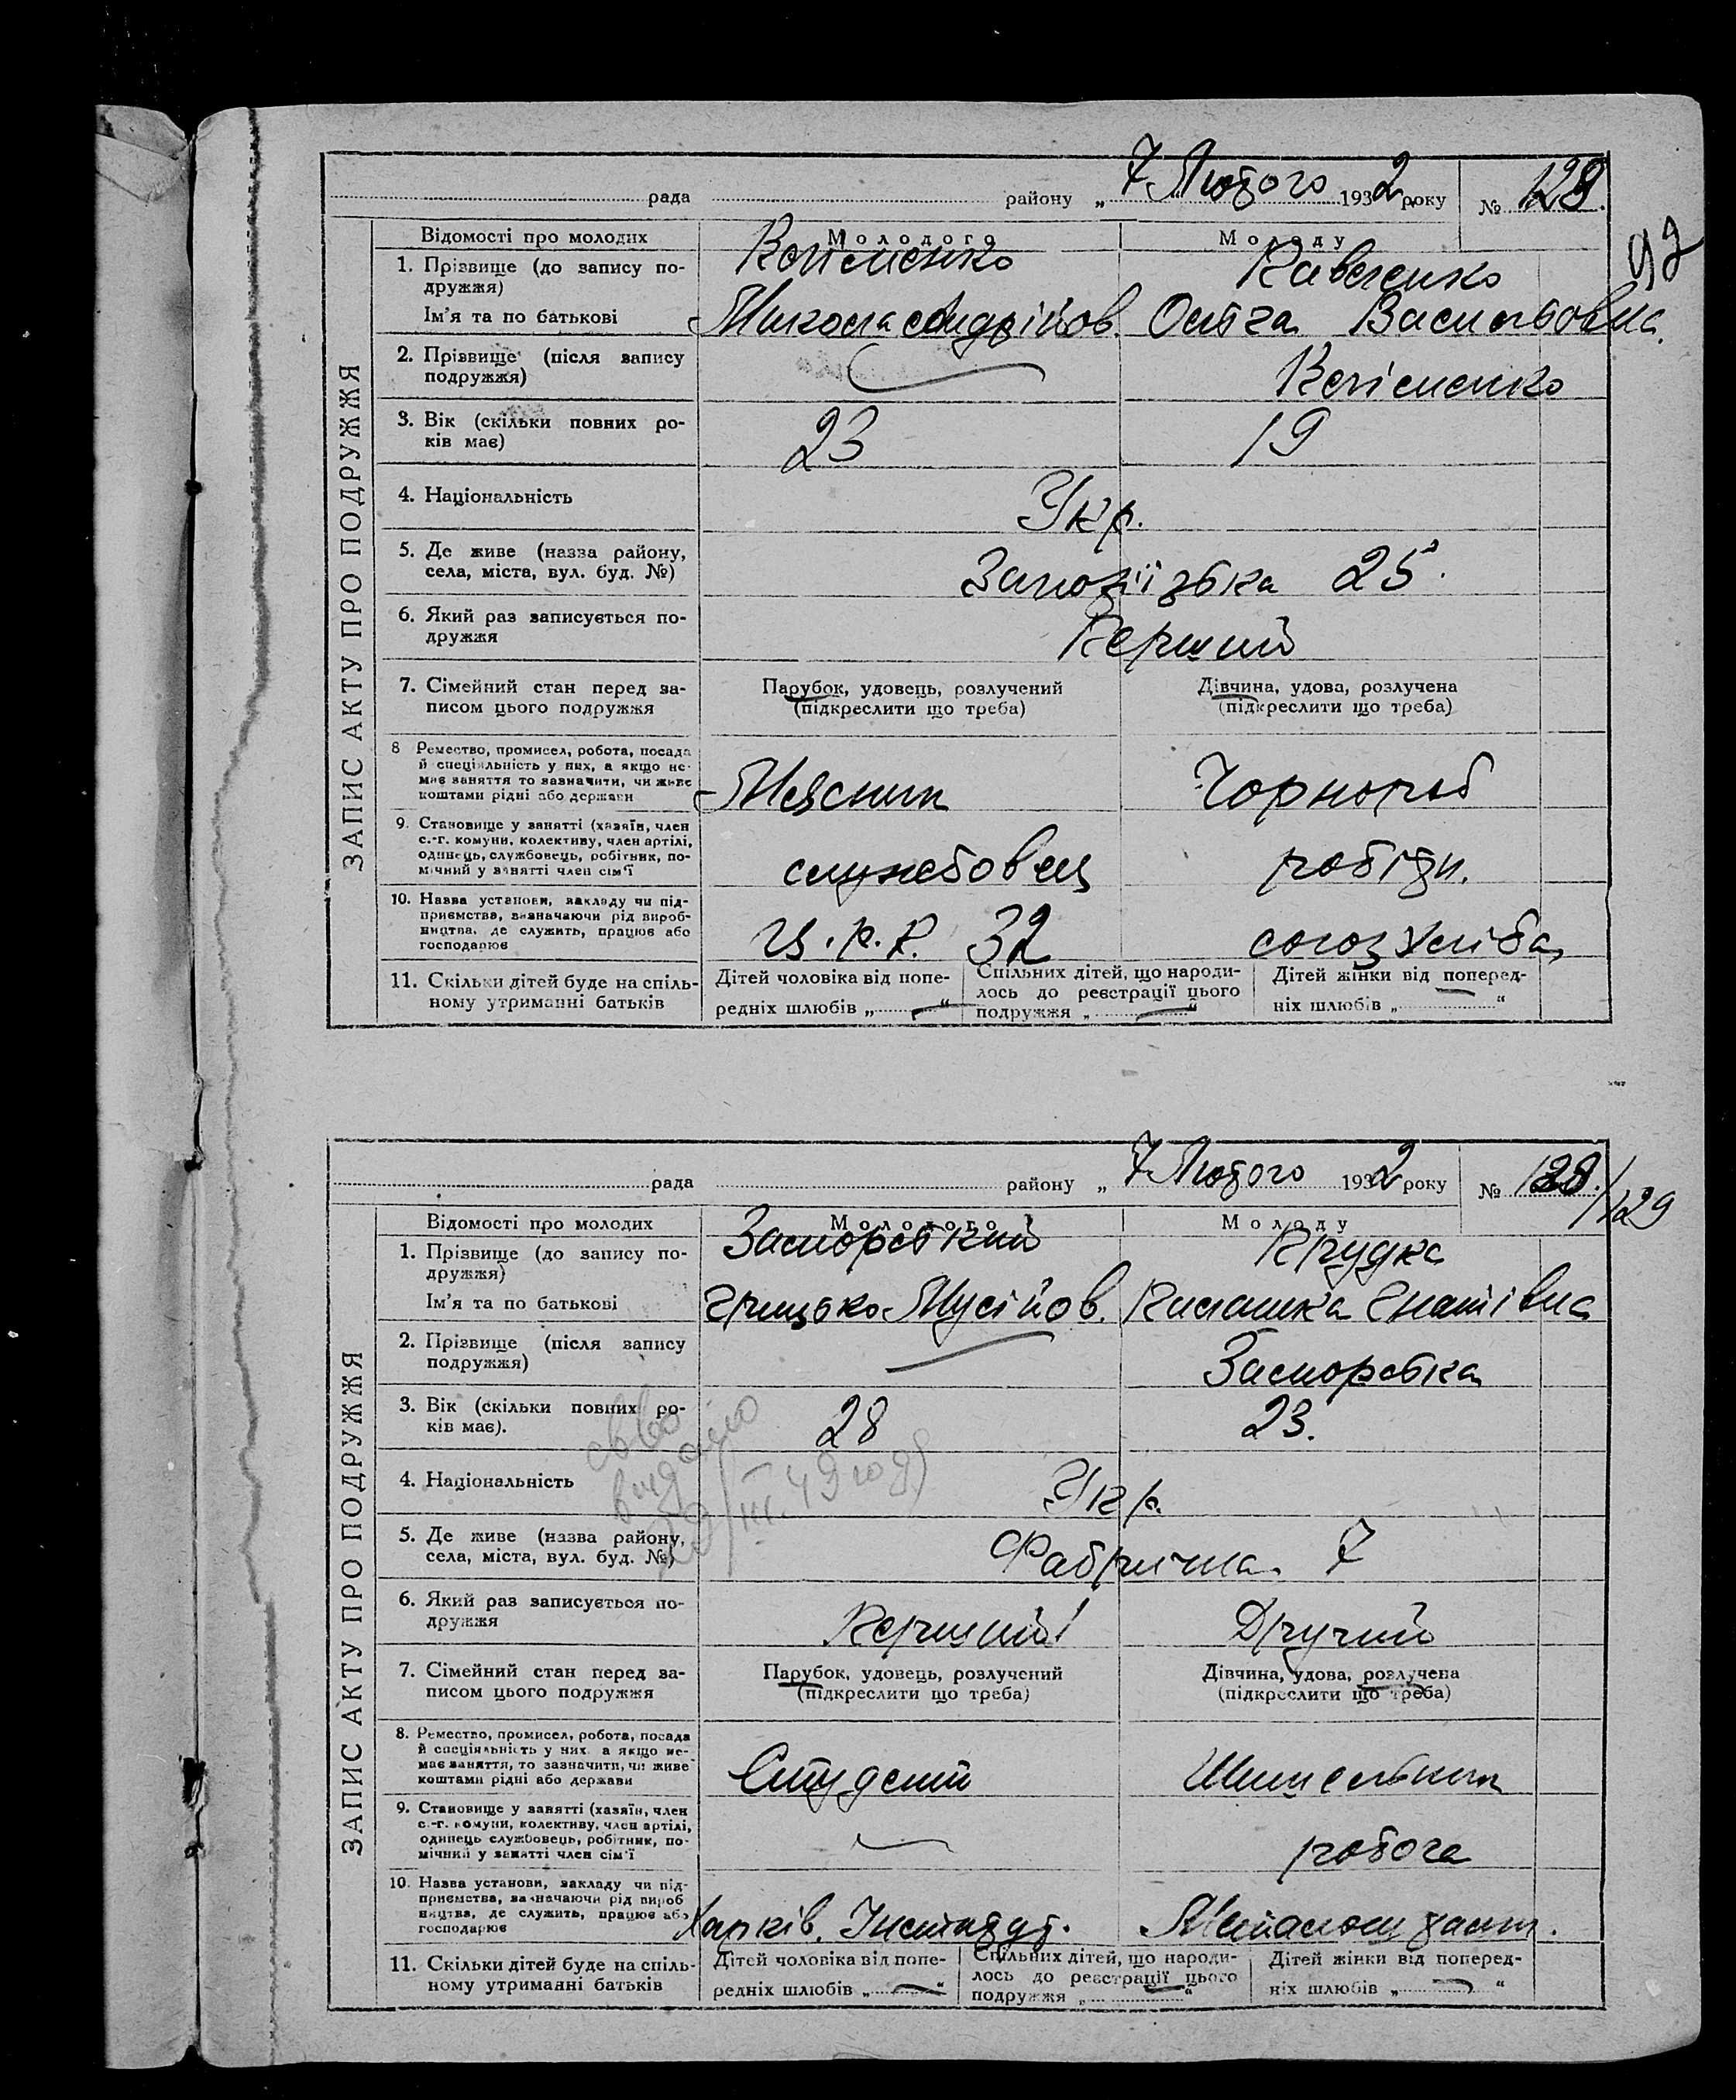 рада району „ 7 Лютого 1932 року № 128.
92
ЗАПИС АКТУ ПРО ПОДРУЖЖЯ
Відомості про молодих
Молодого
Молоду
1. Прізвище (до запису по-
дружжя)
Ім'я та по батькові
Клименко
Микола Андрійов.
Кавленко
Ольга Васильовна
2. Прізвище (після запису
подружжя)
Клименко
3. Вік (скільки повних ро-
ків має)
23
19
4. Національність
Укр.
5. Де живе (назва району,
села, міста, вул. буд. №)
25.
6. Який раз записується по-
дружжя
Перший
7. Сімейний стан перед за-
писом цього подружжя
Парубок, удовець, розлучений
(підкреслити що треба)
Дівчина, удова, розлучена
(підкреслити що треба)
8 Ремество, промисел, робота, посада
й спеціяльність у них, а якщо не-
має заняття то зазначити, чи живе
коштами рідні або держави
Мясник
Чорнороб
9. Становище у занятті (хазяїн, член
с.-г. комуни, колективу, член артілі,
одинець, службовець, робітник, по-
мічний у занятті член сім'ї
службовец
робітн.
10. Назва установи, закладу чи під-
приємства, визначаючи рід вироб-
ництва, де служить, працює або
господарює
Ц.р.к. 32
союзхліба
11. Скільки дітей буде на спіль-
ному утриманні батьків
Дітей чоловіка від попе-
редніх шлюбів „ — “
Спільних дітей, що народи-
лось до реєстрації цього
подружжя „ — “
Дітей жінки від поперед-
ніх шлюбів „ — “
рада району „ 7 Лютого 1932 року № 128./129
ЗАПИС АКТУ ПРО ПОДРУЖЖЯ
Відомості про молодих
Молодого
Молоду
1. Прізвище (до запису по-
дружжя)
Ім'я та по батькові
Заморський
Грицько Мусійов.
Крудка
Килашка Гнатівна
2. Прізвище (після запису
подружжя)
Заморська
3. Вік (скільки повних ро-
ків має).
28
23.
4. Національність
Укр.
св-во
видано
29/III.49 году
5. Де живе (назва району,
села, міста, вул. буд. №)
Фабрична. 7
6. Який раз записується по-
дружжя
Перший
Другий
7. Сімейний стан перед за-
писом цього подружжя
Парубок, удовець, розлучений
(підкреслити що треба)
Дівчина, удова, розлучена
(підкреслити що треба)
8. Ремество, промисел, робота, посада
й спеціяльність у них, а якщо не-
має заняття, то зазначити, чи живе
коштами рідні або держави
Студент
9. Становище у занятті (хазяїн, член
с.-г. комуни, колективу, член артілі,
одинець службовець, робітник, по-
мічний у занятті член сім'ї
робоча
10. Назва установи, закладу чи під-
приємства, зазначаючи рід вироб
ництва, де служить, працює або
господарює
Харків. Інститут.
11. Скільки дітей буде на спіль-
ному утриманні батьків
Дітей чоловіка від попе-
редніх шлюбів „ — “
Спільних дітей, що народи-
лось до реєстрації цього
подружжя „ — “
Дітей жінки від поперед-
ніх шлюбів „ — “